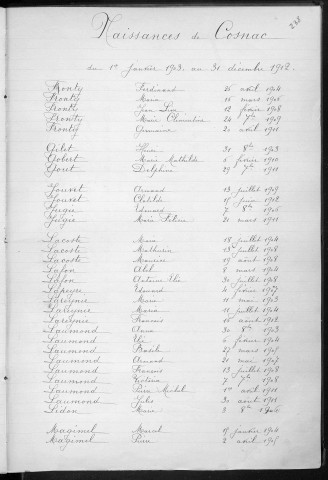 Naissances de Cosnac
du 1er Janvier 1903 au 31 décembre 1912.
Fronty Ferdinand 26 avril 1904
Fronty Marie 16 mars 1908
Fronty Jean Léon 12 février 1908
Fronty Marie Clémentine 24 7bre 1909
Fronty Germaine 20 avril 1911
Golet 31 8bre 1903
Gobert Marie Mathilde 6 février 1910
Gout Delphine 29 7bre 1911
Jouvet Armand 13 juillet 1909
Jouvet Clotilde 17 juin 1912
Jugie Edouard 7 8bre 1906
Jugie Marie 21 mars 1911
Lacoste Marie 18 juillet 1904
Lacoste Mathurin 13 juillet 1908
Lacoste Maurice 19 août 1908
Lafon Abel 8 mars 1904
Lafon Antoine Elie 30 juillet 1908
Lapeyre Edouard 4 février 1907
Larignie Marie 11 mai 1903
Larignie Maria 11 juillet 1904
Larignie François 16 août 1912
Laumond Anna 30 8bre 1903
Laumond Elie 6 février 1904
Laumond Basile 27 mars 1909
Laumond Armand 21 mai 1907
Laumond François 13 juillet 1908
Laumond 7 7bre 1908
Laumond Pierre Michel 1er avril 1911
Laumond Jules 30 août 1911
Lidon Marie 3 8bre 1906
Magimel Marcel 17 janvier 1904
Magimel Pierre 2 avril 1905